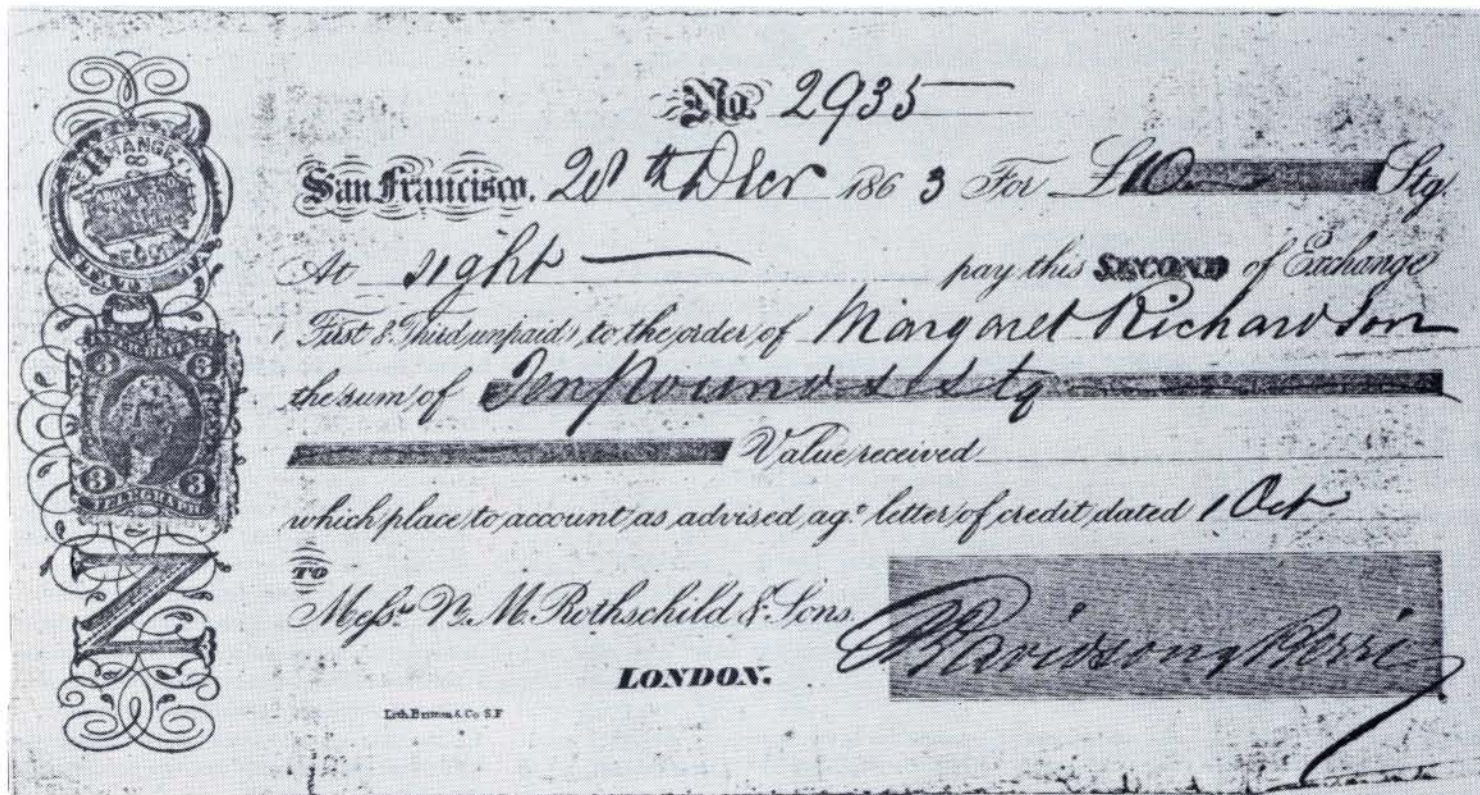 No. 2935
San Francisco. 28th Decr 1863 For £10 Stg.
At sight pay this SECOND of Exchange
First & Third unpaid to the order of Margaret Richardson
the sum of Ten Pounds Stg
Value received
which place to account as advised agt. letter of credit dated 1 Oct
TO
Messrs. N. M. Rothschild & Sons.
LONDON.
3 3
3 3